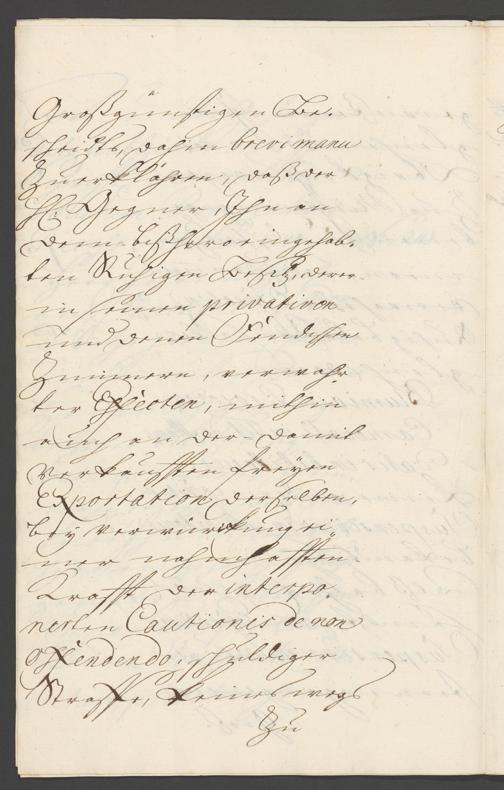 Großgünstigen Be-
scheidts, dahin brevi manu
Zuerklähren, daß der
H: Gegner, Ihn an
dem bißhero eingehab-
ten Ruhigen Besitz, derer
in seinen privativen
und denen
Zimmern, verwahr-
ter Effecten, mithin
auch an der damit
verknüpfften freyen
Exportation, derselben,
bey verwürckung ei-
ner nahmhafften
Krafft der interpo-
nirten Cautionis de non
offendendo, schuldiger
Straffe, keines wegs
Zu